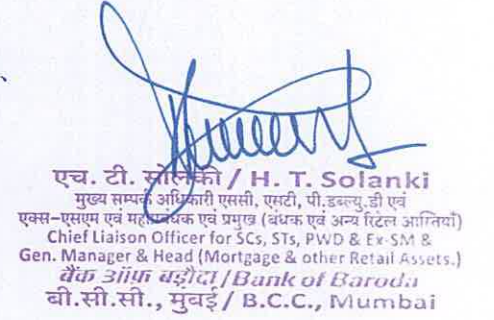 एच. टी. सोलंकी / H. T. Solanki
मुख्य सम्पर्क अधिकारी एससी, एसटी, पी.डब्ल्यु.डी एवं
एक्स–एसएम एवं महाप्रबंधक एवं प्रमुख (बंधक एवं अन्य रिटेल आस्तियाँ)
Chief Liaison Officer for SCs, STs, PWD & Ex-SM &
Gen. Manager & Head (Mortgage & other Retail Assets.)
बैंक ऑफ़ बड़ौदा / Bank of Baroda
बी.सी.सी., मुंबई / B.C.C., Mumbai